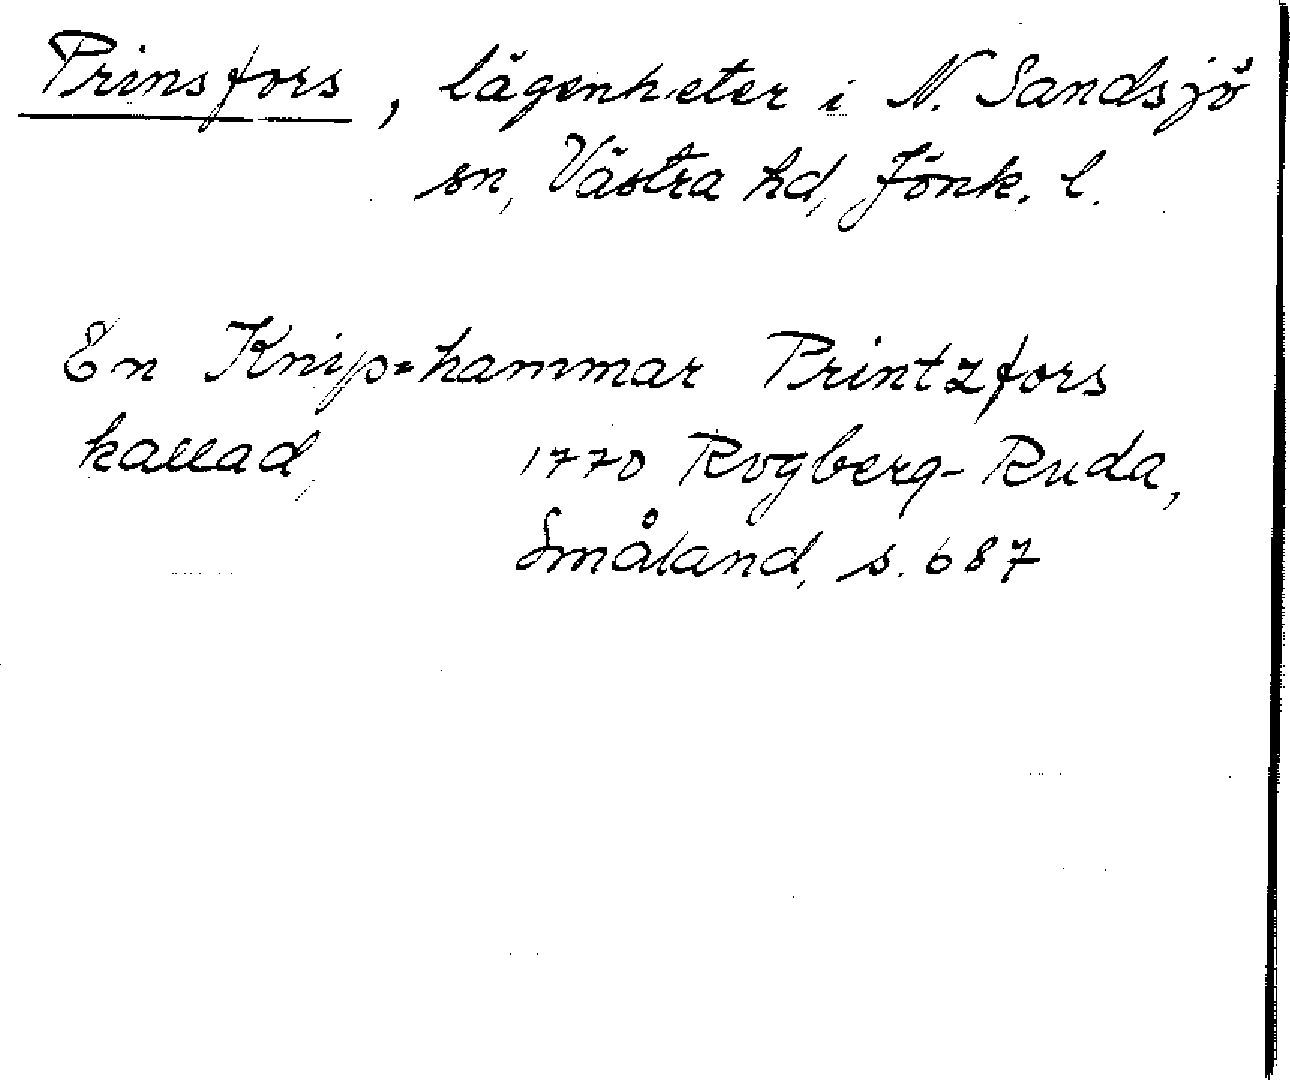 Prinsfors, lägenheter i N. Sandsjö
sn, Västra hd, Jönk. l.
En Knip=hammar Printzfors
kallad, 1770 Rogberg-Ruda,
Småland, s. 687